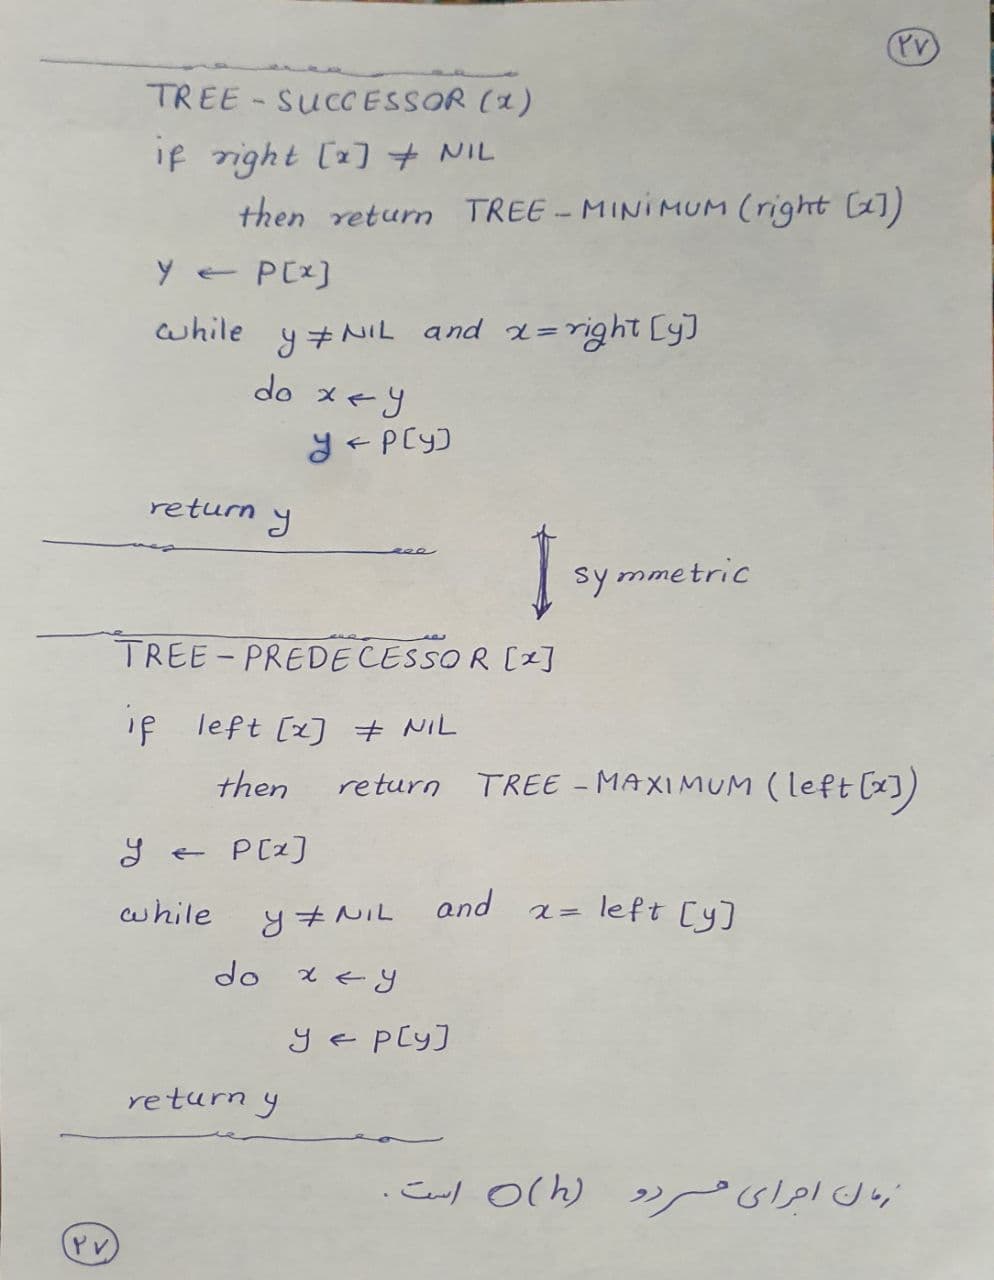 ۲۷
TREE - SUCCESSOR (x)
if right [x] ≠ NIL
then return TREE - MINIMUM (right [x])
y ← P[x]
while y ≠ NIL and x = right [y]
do x ← y
y ← P[y]
return y
symmetric
TREE - PREDECESSOR [x]
if left [x] ≠ NIL
then return TREE - MAXIMUM (left [x])
y ← P[x]
while y ≠ NIL and x = left [y]
do x ← y
y ← P[y]
return y
زمان اجرای هر دو O(h) است.
۲۷